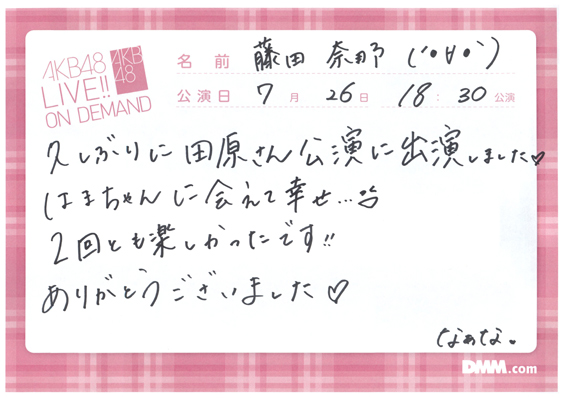 AKB48
LIVE!!
ON DEMAND
AKB
48
名前 藤田 奈那 (´•∀•`)
公演日 7月 26日 18:30公演
久しぶりに田原さん公演に出演しました♡
はまちゃんに会えて幸せ...
2回とも楽しかったです!!
ありがとうございました♡
なぁな。
DMM.com